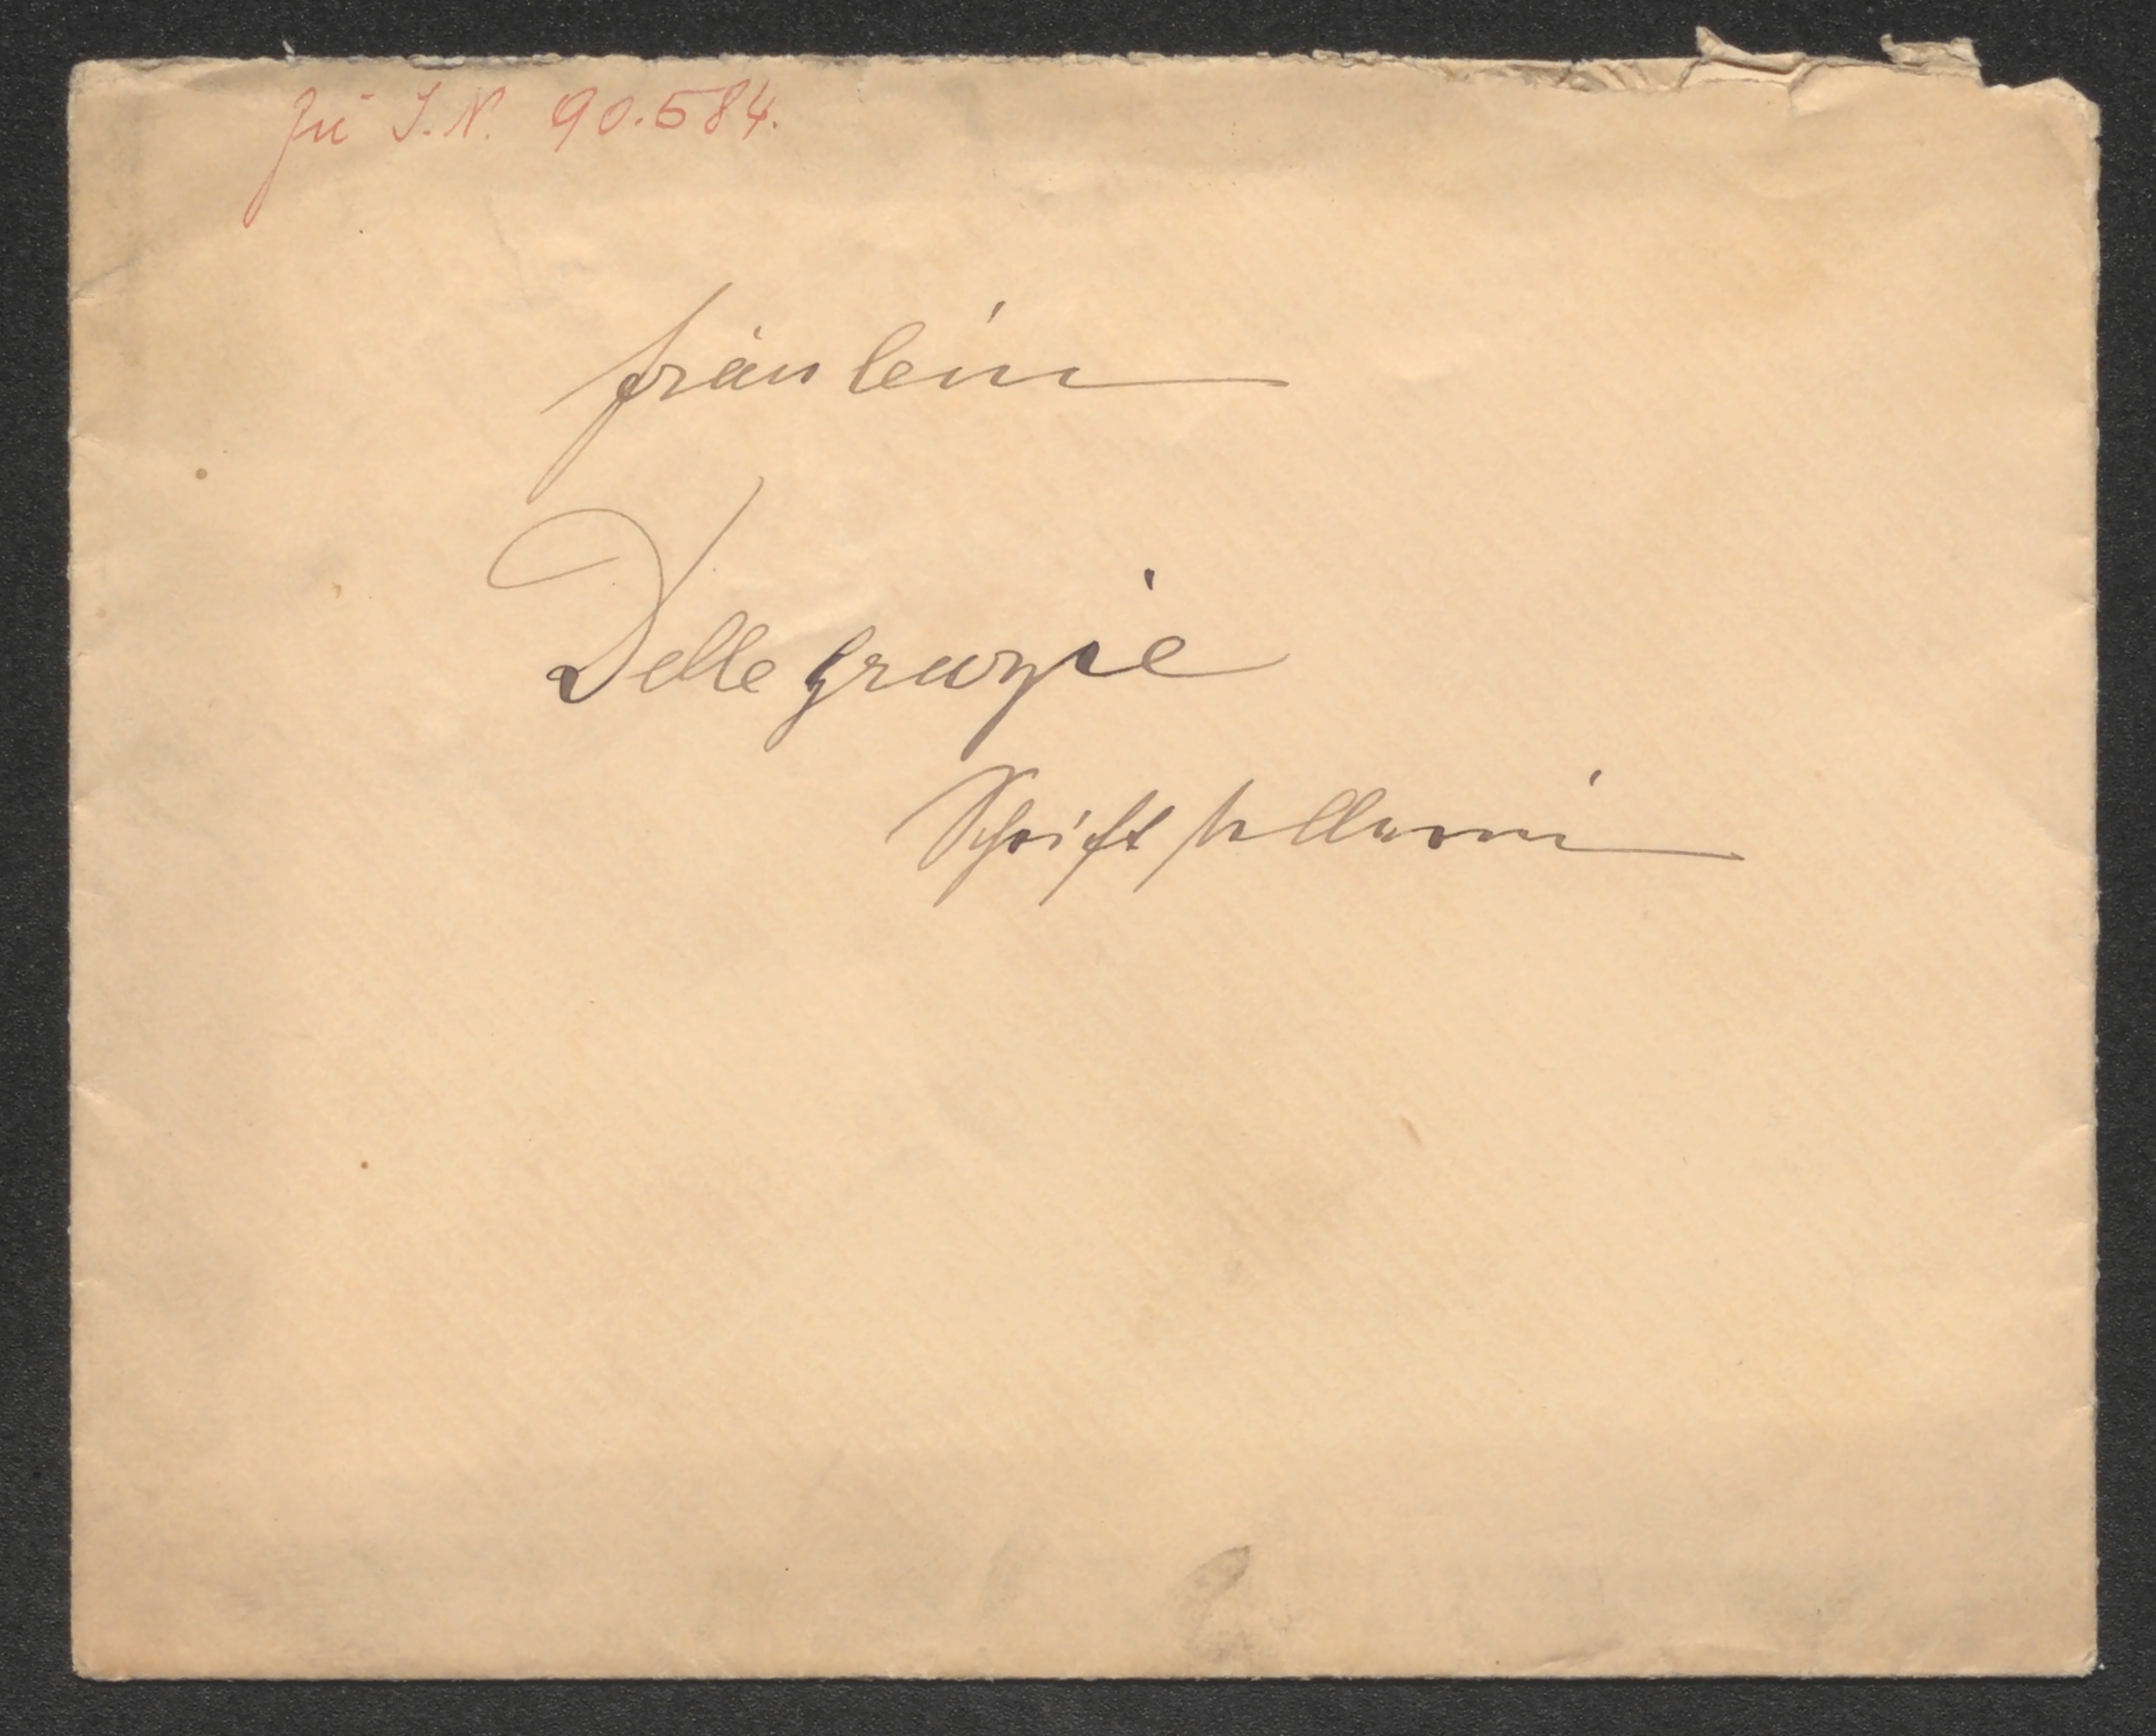 Zu I.N. 90.584.
Fräulein
Delle Grazie
Schriftstellerin